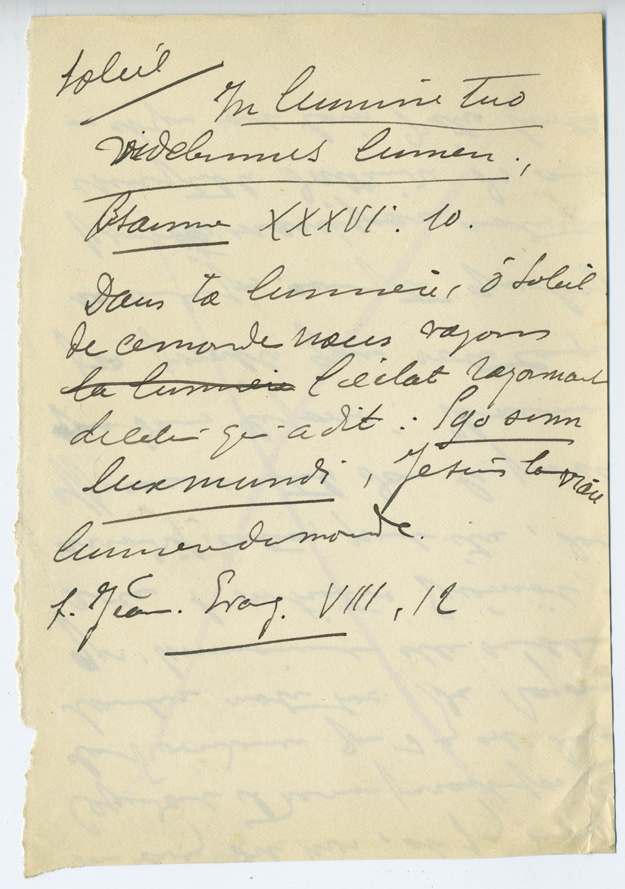 Soleil
In lumine tuo
videbimus lumen.,
Psaume XXXVI. 10.
Dans ta lumière, ô Soleil
de ce monde nous voyons
la lumière l'éclat rayonnant
de celui qui a dit : Ego sum
lux mundi, Je suis la vraie
lumière du monde.
S. Jean. Evang. VIII, 12